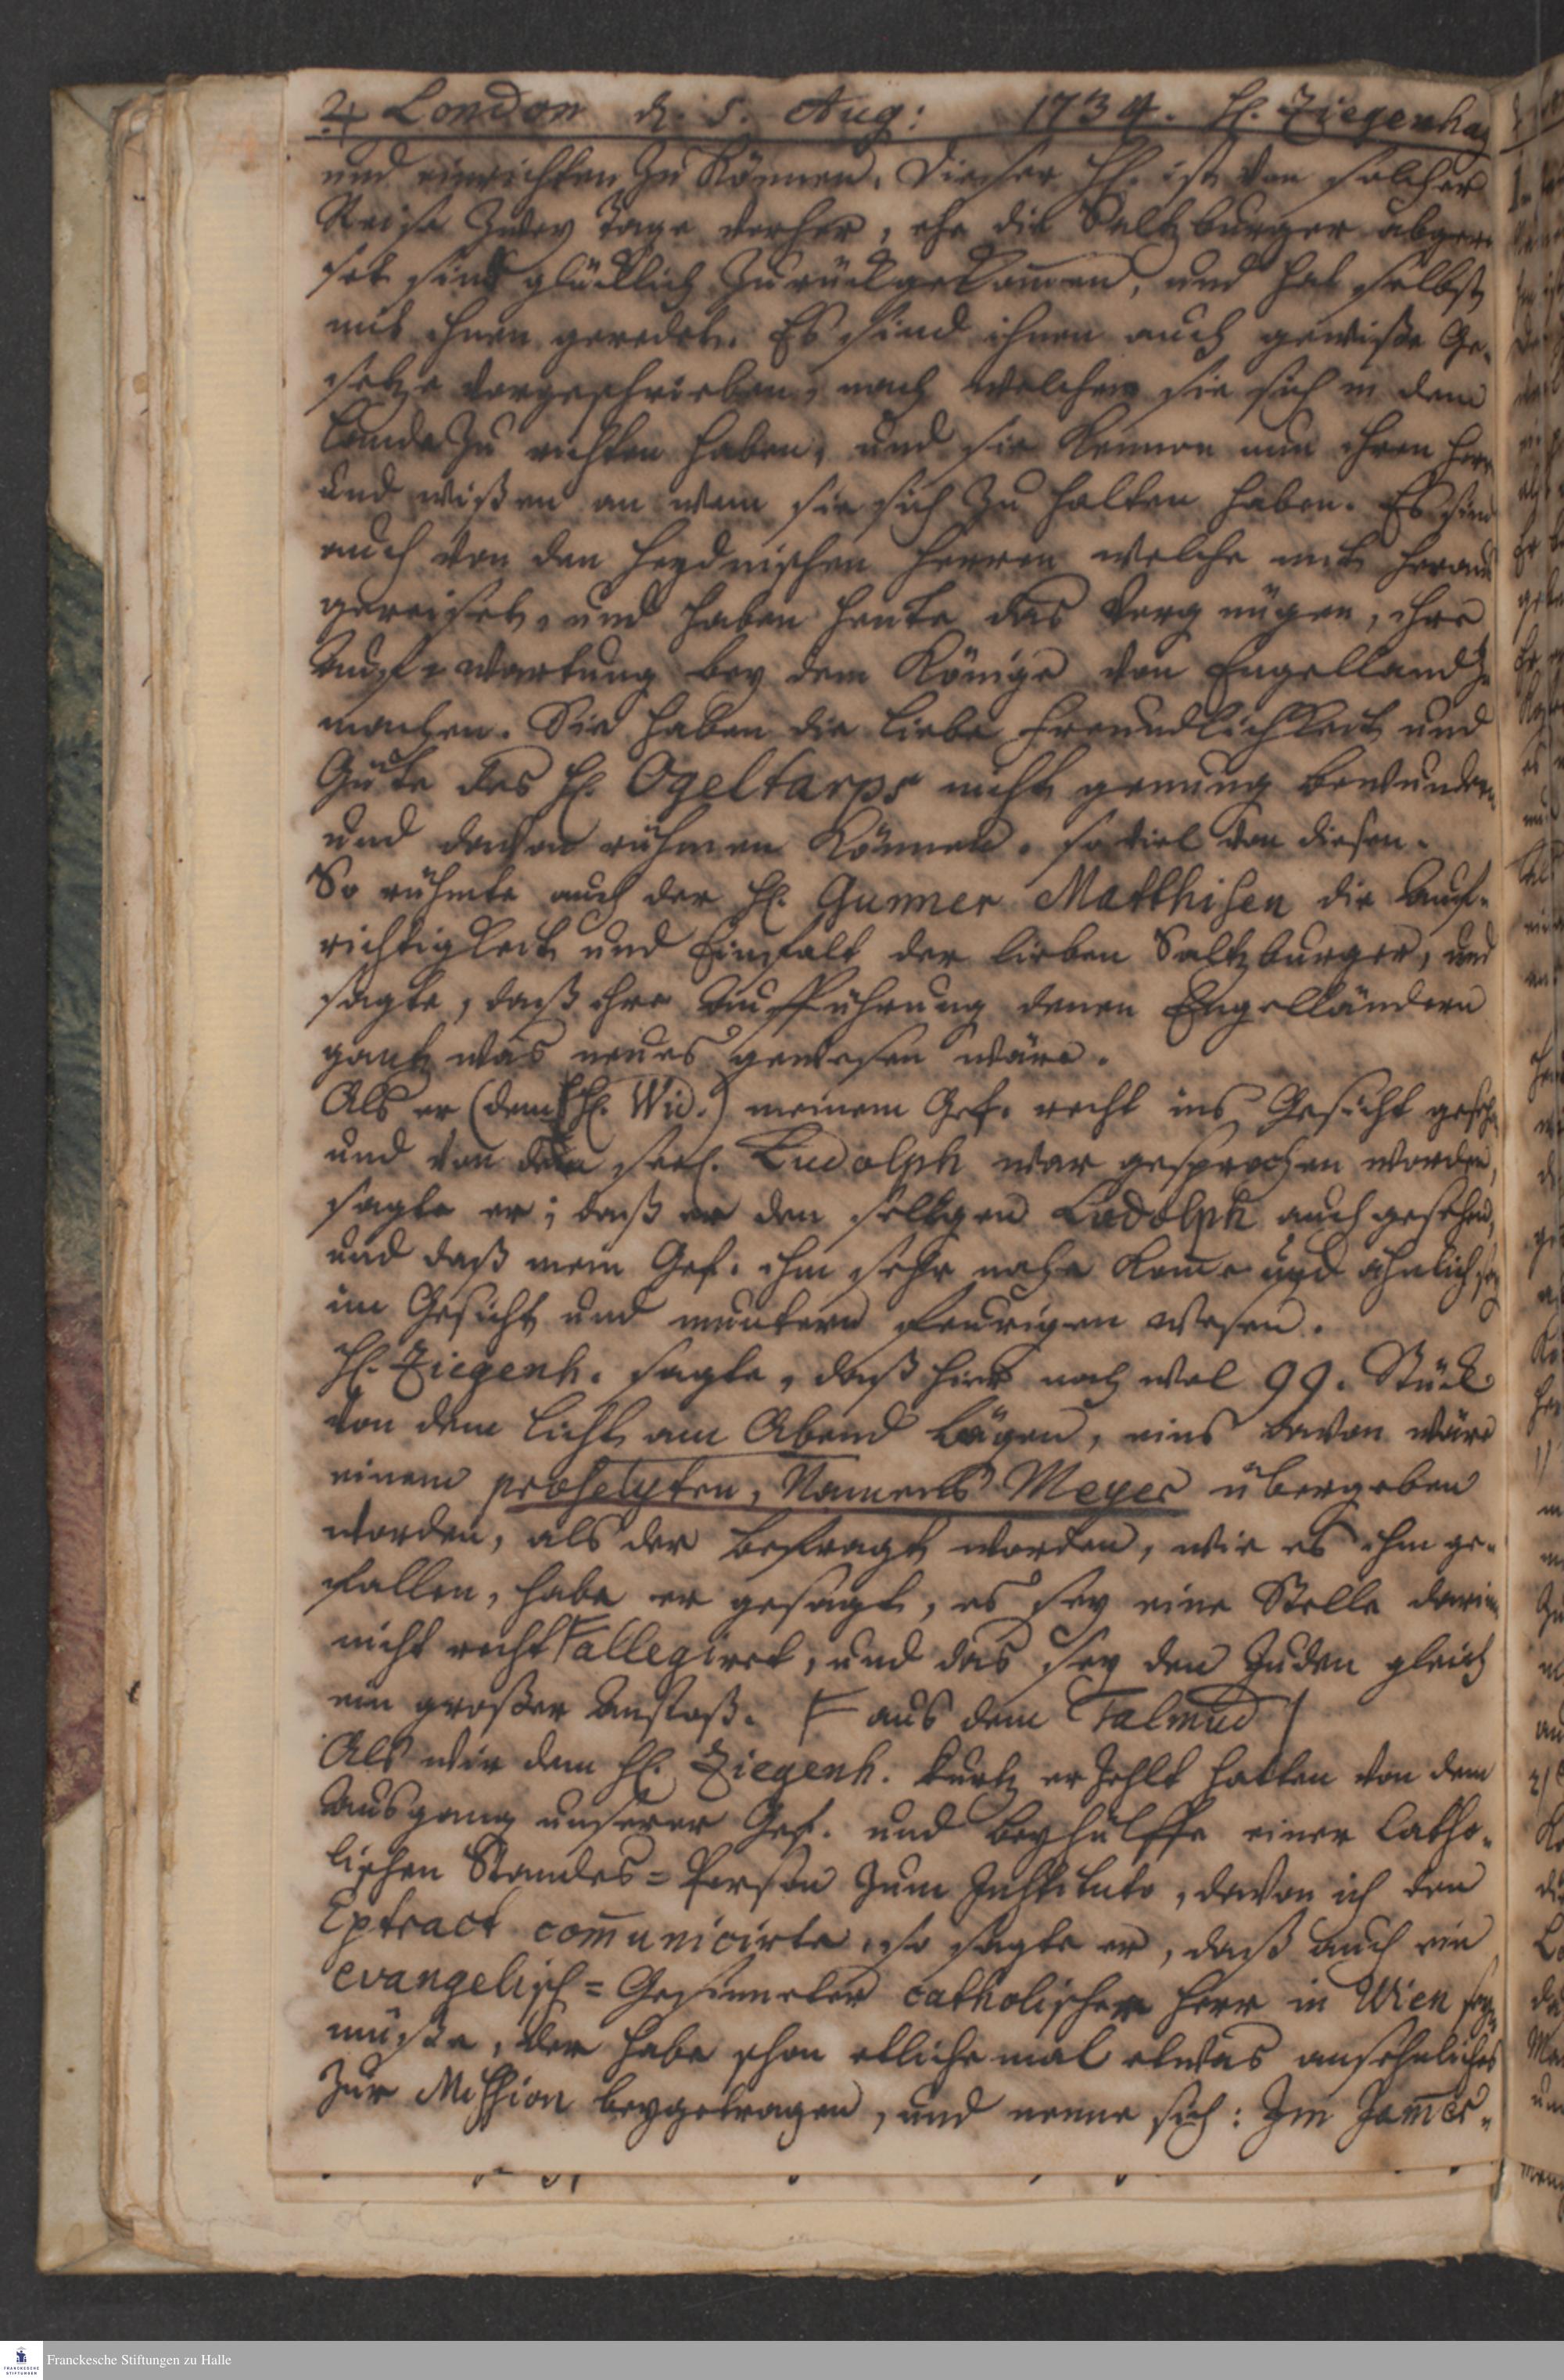 ♃ London d. 5. Aug: 1734. H. Ziegenhag
und einrichten zu können. Dieser H. ist von solcher
Reise zwey Tage vorher, ehe die Saltzburger abgerei
set sind glücklich zurückgekom̅en, und hat selbst
mit ihnen geredet. Es sind ihnen auch gewiße Ge-
setze vorgeschrieben, nach welchen sie sich in dem
Lande zu richten haben, und sie kennen nun ihren Herr
und wißen an wem sie sich zu halten haben. Es sind
auch von den heydnischen Herren welche mit heraus
gereiset, und haben heute das Vergnügen, ihre
Auff-wartung bey dem Könige von Engelland zu
machen. Sie haben die Liebe Freundlichkeit und
Güte des H. Ogeltarps nicht genung bewundern
und davon rühmen können. so viel von diesen.
So rühmte auch der H. Gunner Matthisen die Auf-
richtigkeit und Einfalt der lieben Saltzburger, und
sagte, daß ihre Aufführung denen Engelländern
gantz was neues gewesen wäre.
Als er (dem H. Wid.) meinem Gef. recht ins Gesicht geseh
und von dem seel. Ludolph war gesprochen worden,
sagte er; daß er den seligen Ludolph auch gesehen,
und daß mein Gef. ihm sehr nahe kom̅e und ähnlich sey
im Gesicht und muntern feurigen Wesen.
H. Ziegenh. sagte, daß hier noch wol 99. Stück
von dem Licht am Abend lägen, eins davon wäre
einem proselyten, Namens Meyer übergeben
worden, als der befragt worden, wie es ihm ge-
fallen, habe er gesagt, es sey eine Stelle darin
nicht recht allegiret, und das sey den Juden gleich
ein großer Anstoß. F aus dem Talmud /
Als wir dem H. Ziegenh. kurtz erzehlt hatten von dem
Ausgang unserer Gef. und Beyhülffe einer Catho-
lischen Standes=Person zum Instituto, davon ich den
Extract com̅unicirte, so sagte er, daß auch ein
evangelisch=Gesinneter catholischer Herr in Wien seyn
müßte, der habe schon etliche mal etwas ansehnliches
zur Mission beygetragen, und nenne sich: Im Jam̅er-
Franckesche Stiftungen zu Halle